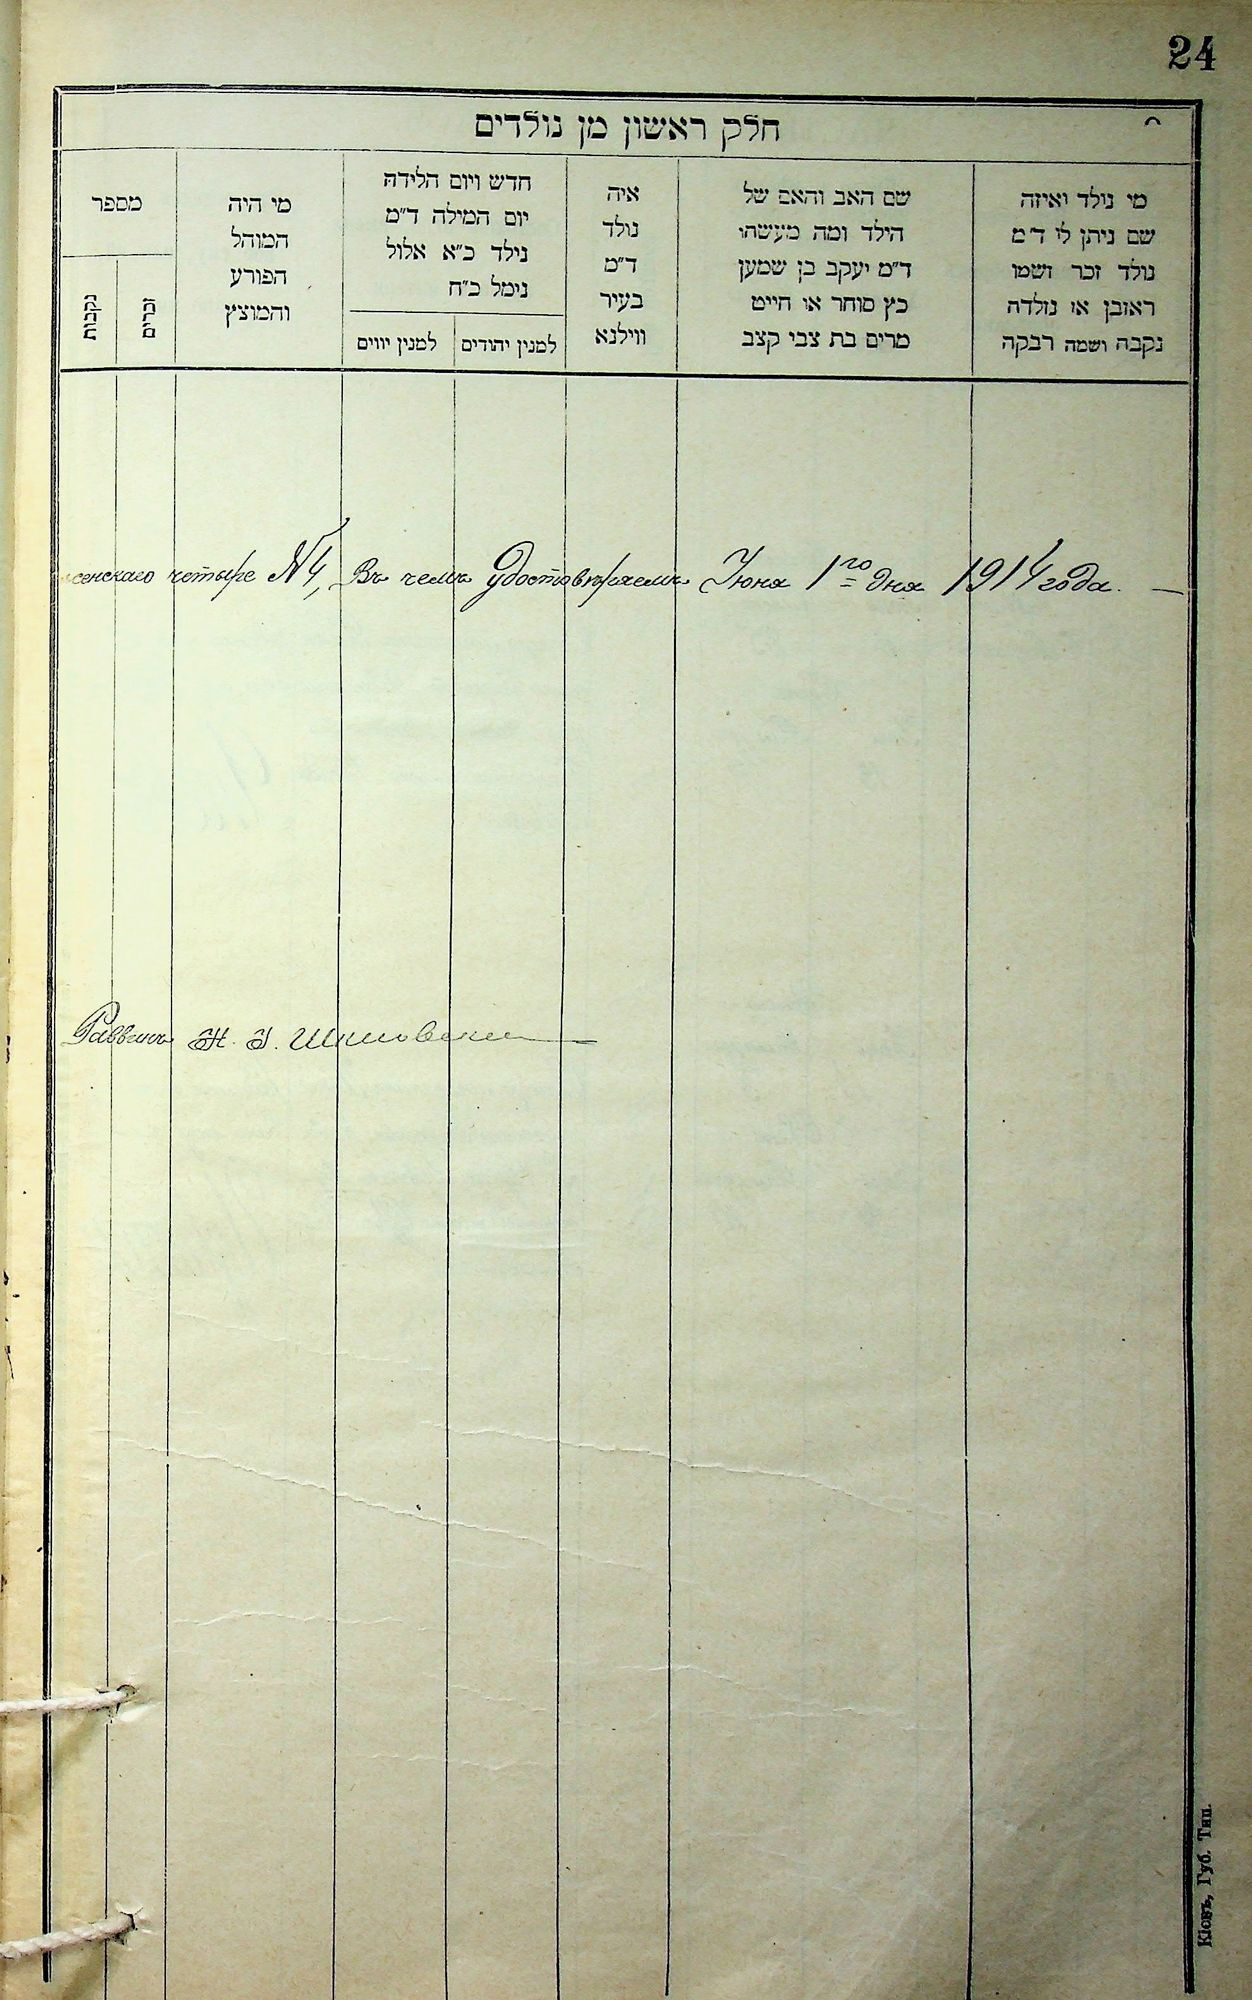 24
חלק ראשון מן נולדים
מי נולד ואיזה
שם ניתן לו ד״מ
נולד זכר ושמו
ראובן או נולדה
נקבה ושמה רבקה
שם האב והאם של
הילד ומה מעשהו
ד״מ יעקב בן שמען
כץ סוחר או חייט
מרים בת צבי קצב
איה
נולד
ד״מ
בעיר
ווילנא
חדש ויום הלידה
יום המילה ד״מ
נילד כ״א אלול
נימל כ״ח
למנין יהודים
למנין יווים
מי היה
המוהל
הפורע
והמוצץ
מספר
זכרים
נקבות
сенскаго четыре №4, Въ чемъ удостовѣряемъ Іюня 1го дня 1914 года. —
Раввинъ
Кіевъ, Губ. Тип.